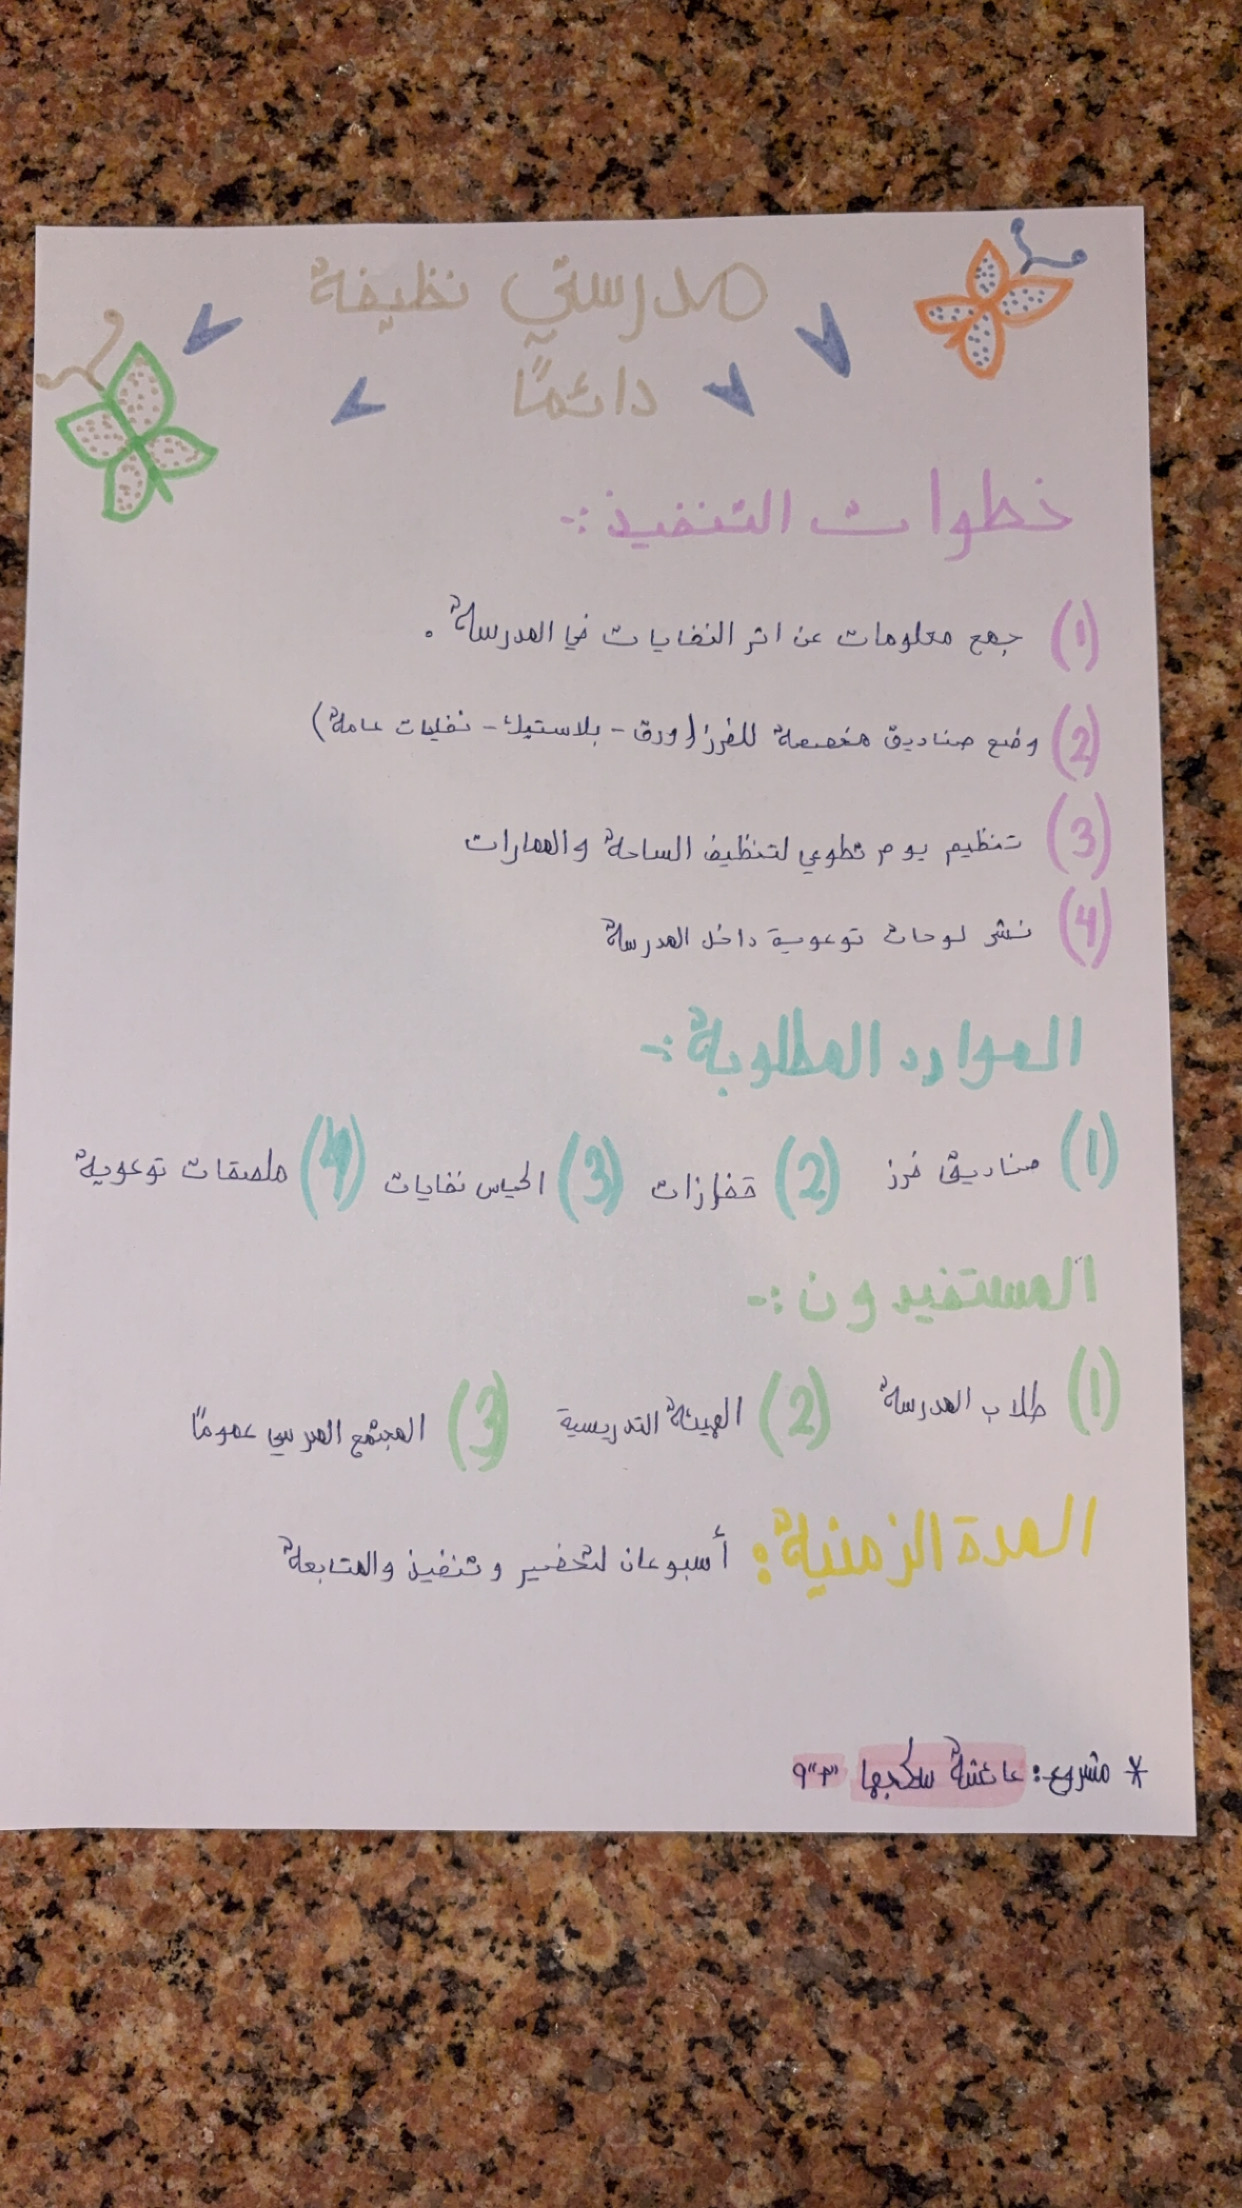 مدرستي نظيفة
دائمًا
خطوات التنفيذ :-
(1) جمع معلومات عن اثر النفايات في المدرسة .
(2) وضع صناديق مخصصة للفرز (ورق - بلاستيك - نفايات عامة)
(3) تنظيم يوم تطوعي لتنظيف الساحة والممارات
(4) نشر لوحات توعوية داخل المدرسة
الموارد المطلوبة :-
(1) صناديق فرز (2) قفازات (3) اكياس نفايات (4) ملصقات توعوية
المستفيدون :-
(1) طلاب المدرسة (2) الهيئة التدريسية (3) المجتمع المدرسي عمومًا
المدة الزمنية : أسبوعان لتحضير وتنفيذ والمتابعة
* مشروع : عائشة سكجها